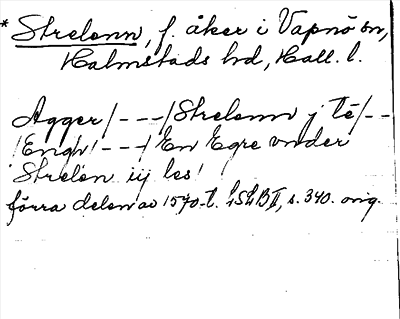 * Strelenn, f. åker i Vapnö sn,
Halmstads hd, Hall. l.
Agger /---/ Strelenn j Té /--
/Engh/ ---/ En Egre vnder
Strelen iij les!
förra delen av 1570-t. LSLB II, s. 340. orig.